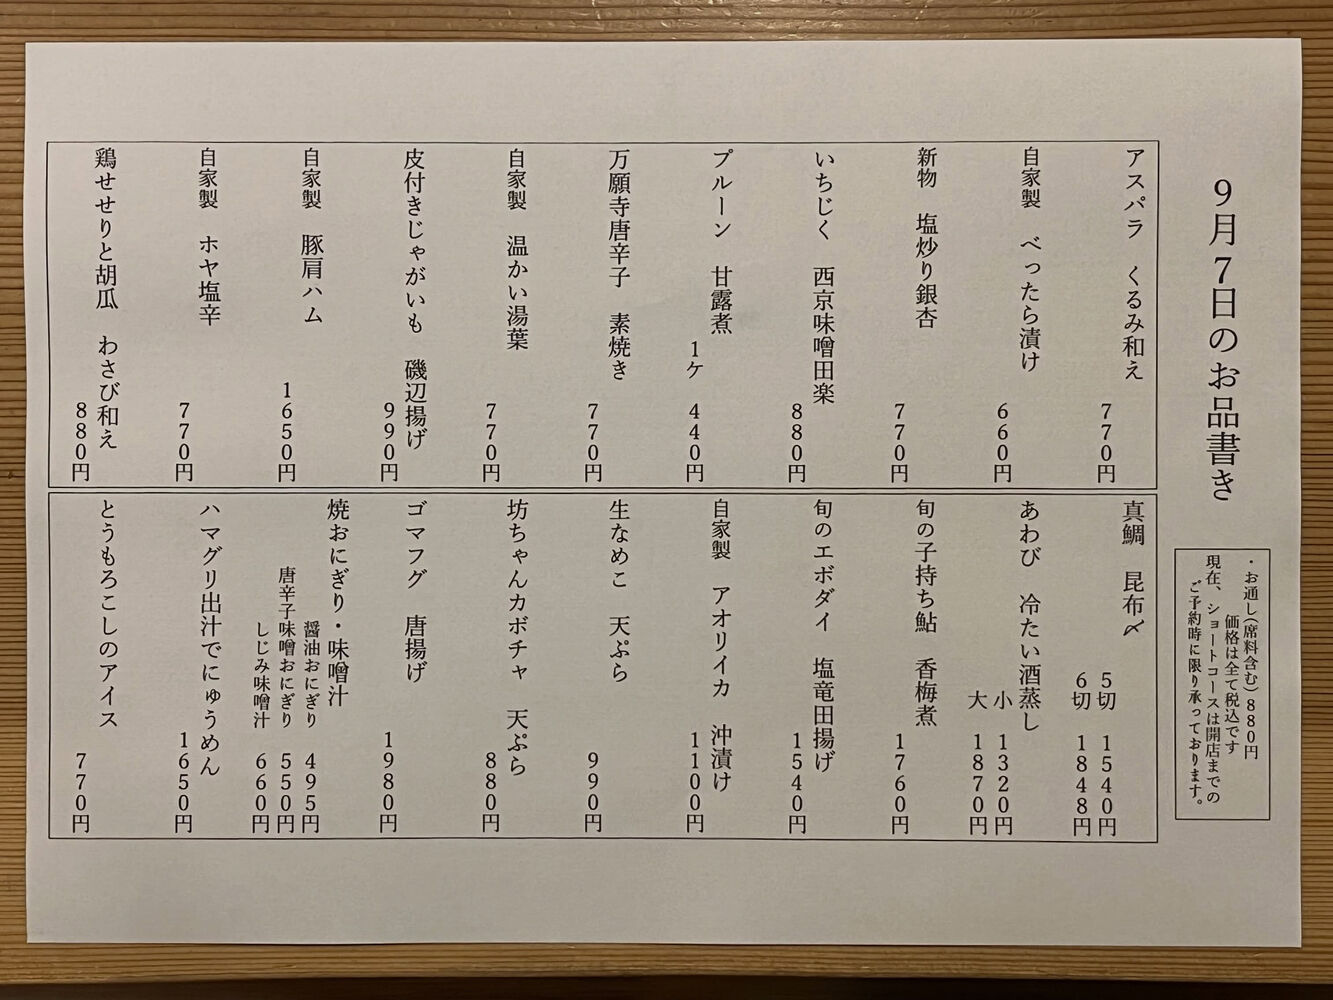 9月7日のお品書き
・お通し(席料含む)880円
価格は全て税込です
現在、ショートコースは開店までの
ご予約時に限り承っております。
アスパラ　くるみ和え
770円
自家製　べったら漬け
660円
新物　塩炒り銀杏
770円
いちじく　西京味噌田楽
880円
プルーン　甘露煮
1ケ　440円
万願寺唐辛子　素焼き
770円
自家製　温かい湯葉
770円
皮付きじゃがいも　磯辺揚げ
990円
自家製　豚肩ハム
1650円
自家製　ホヤ塩辛
770円
鶏せせりと胡瓜　わさび和え
880円
真鯛　昆布〆
5切　1540円
6切　1848円
あわび　冷たい酒蒸し
小　1320円
大　1870円
旬の子持ち鮎　香梅煮
1760円
旬のエボダイ　塩竜田揚げ
1540円
自家製　アオリイカ　沖漬け
1100円
生なめこ　天ぷら
990円
坊ちゃんカボチャ　天ぷら
880円
ゴマフグ　唐揚げ
1980円
焼おにぎり・味噌汁
醤油おにぎり　495円
唐辛子味噌おにぎり　550円
しじみ味噌汁　660円
ハマグリ出汁でにゅうめん
1650円
とうもろこしのアイス
770円